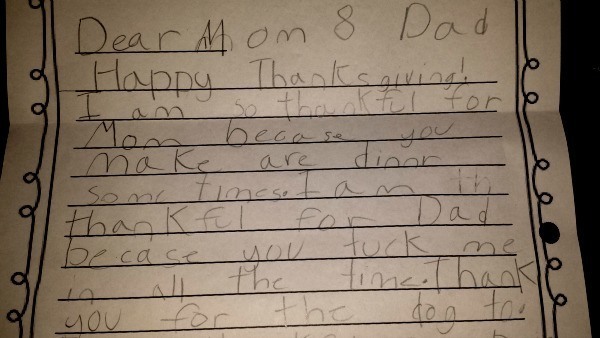 Dear Mom & Dad
Happy Thanksgiving!
I am so thankful for
Mom becase you
make are dinnr
some times. I am th
thankful for Dad
becase you tuck me
in all the time. Thank
you for the dog to.